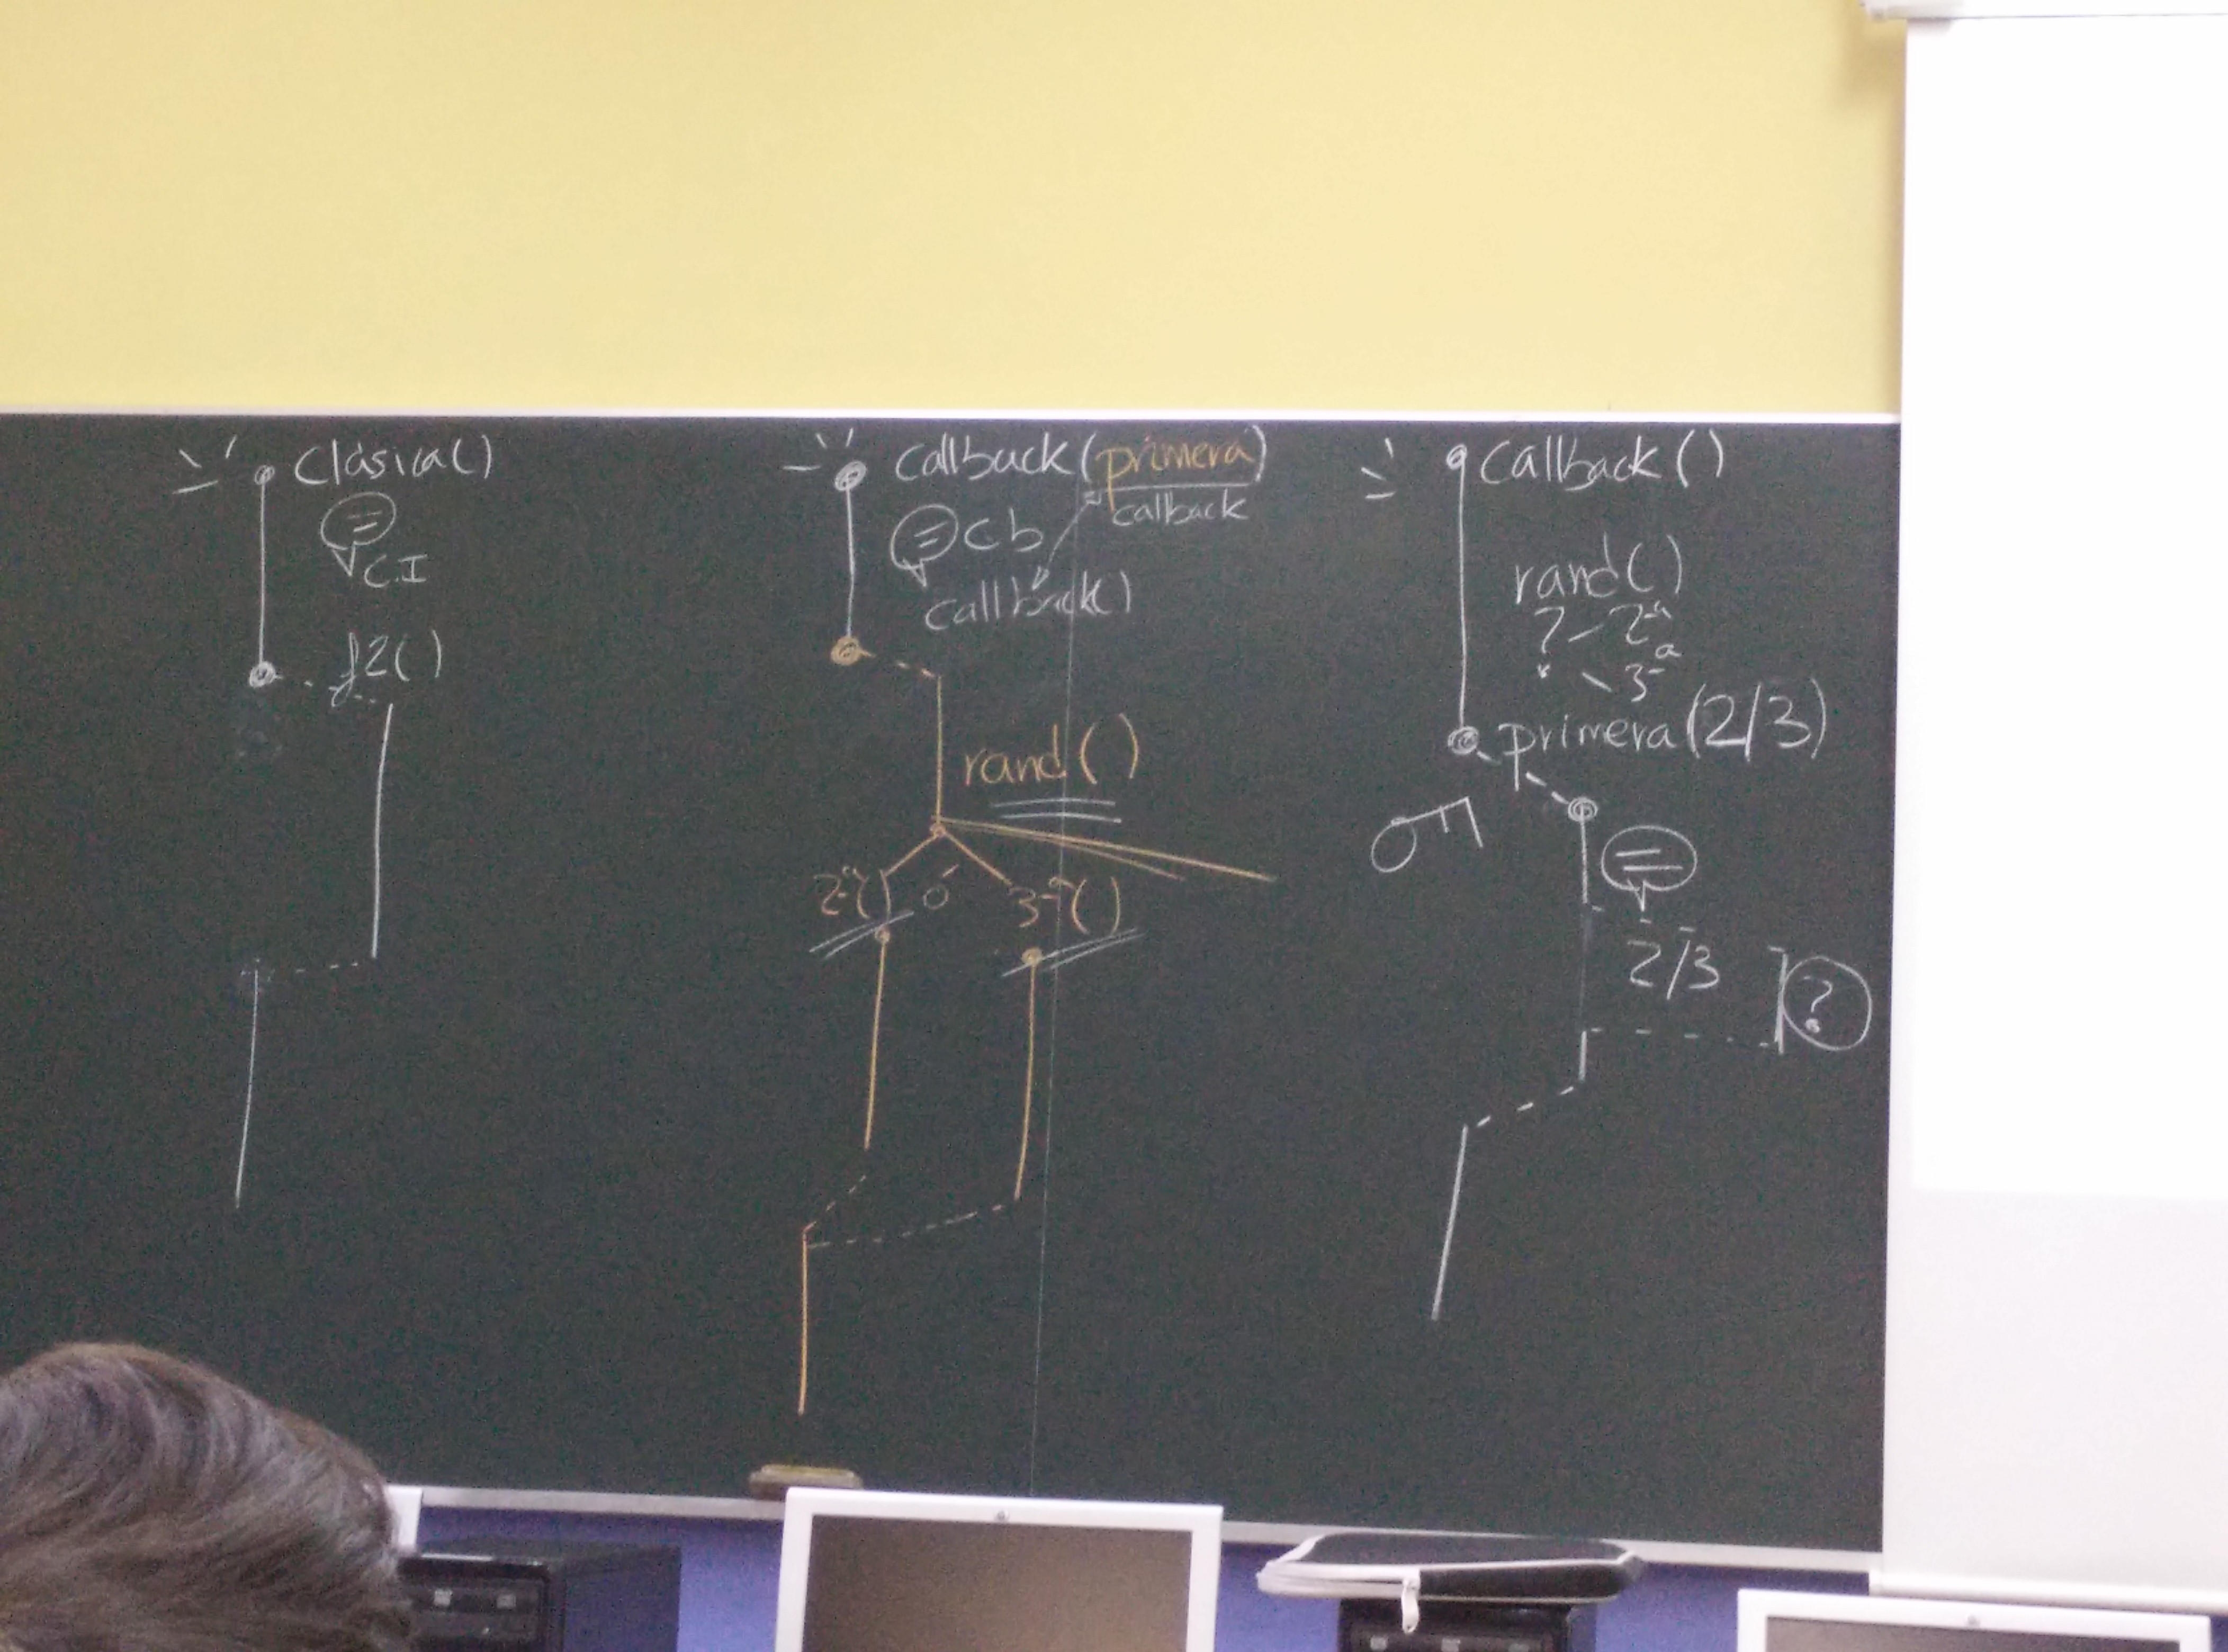 Clásica()
C.I
f2()
callback(primera)
callback
cb
callback()
rand()
2ª() ó 3ª()
callback()
rand()
? 2ª
3ª
primera(2/3)
2/3
?